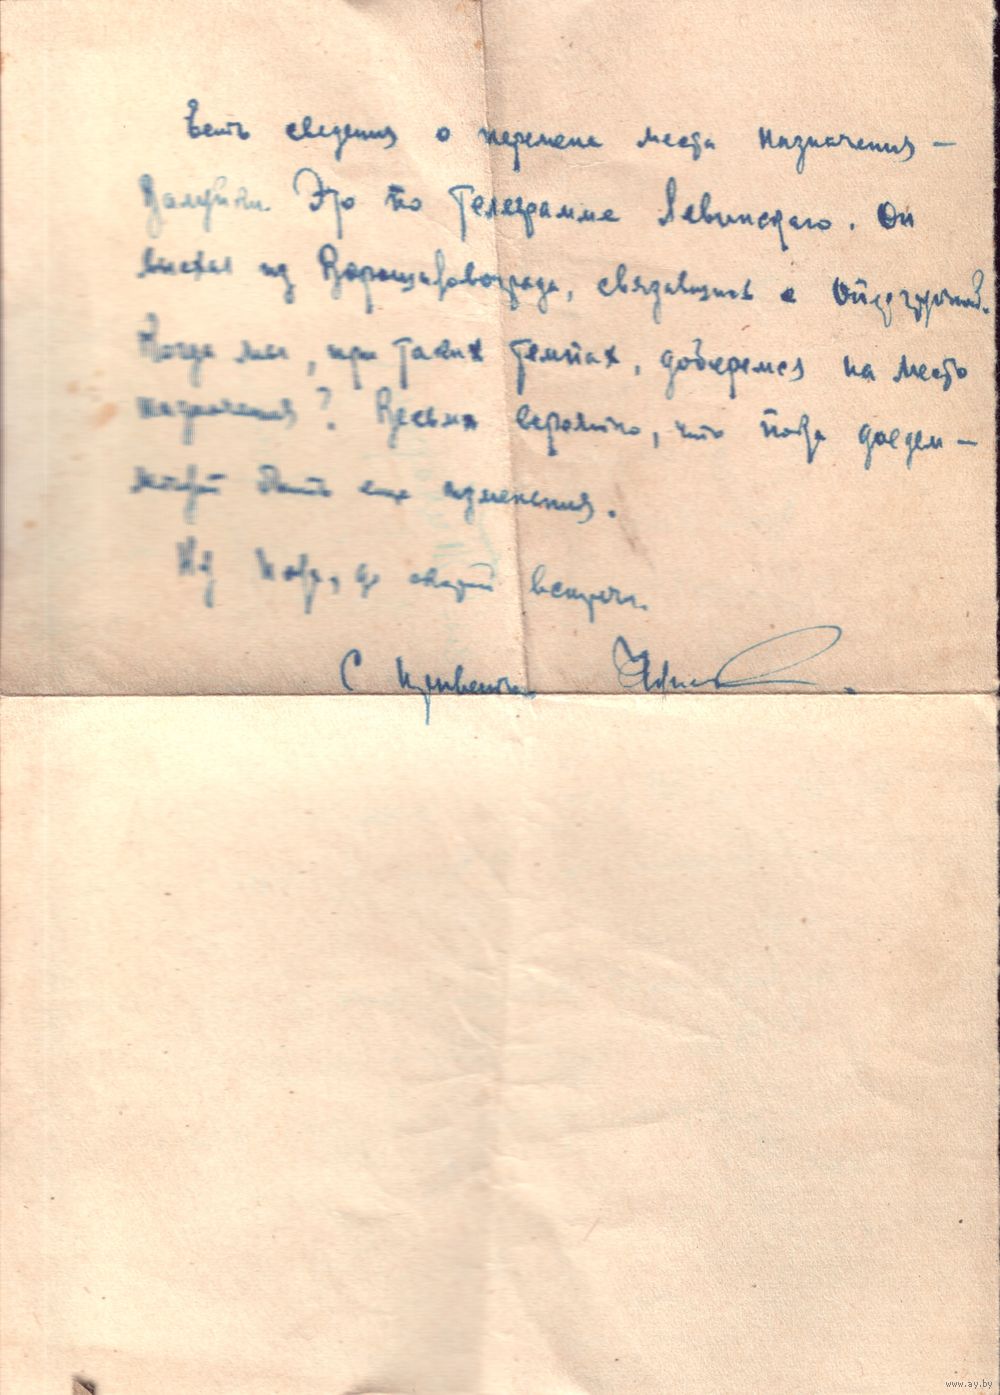 Есть сведения о перемене места назначения —
Валуйки. Это по телеграмме Левинского. Он
выехал из Ворошиловграда, связавшись с
Когда мы, при таких темпах, доберемся на место
назначения? Весьма вероятно, что пока доедем —
может быть еще изменения.
Ну пока, до скорой встречи.
С приветом
www.ay.by